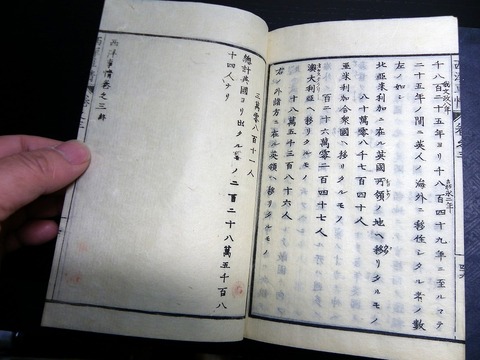 西洋事情
千八百二十五年ヨリ千八百四十九年ニ至ルマテ
嘉永二年
二十五年ノ間ニ英人ノ海外ニ移住シタル者ノ數
左ノ如シ
北亞米利加ニ在ル英國所領ノ地ヘ移リタルモノ
八十萬零八千七百四十人
亞米利加合衆國ヘ移リタルモノ
百二十六萬零二百四十七人
澳大利亞ヘ移リタルモノ
十八萬五千三百八十六人
右ノ外諸方ニ在ル英領ヘ移リタルモノ
三萬零八百十一人
總計英國ヨリ出タル者ノ二百二十八萬五千百八
十四人ナリ
西洋事情卷之三終